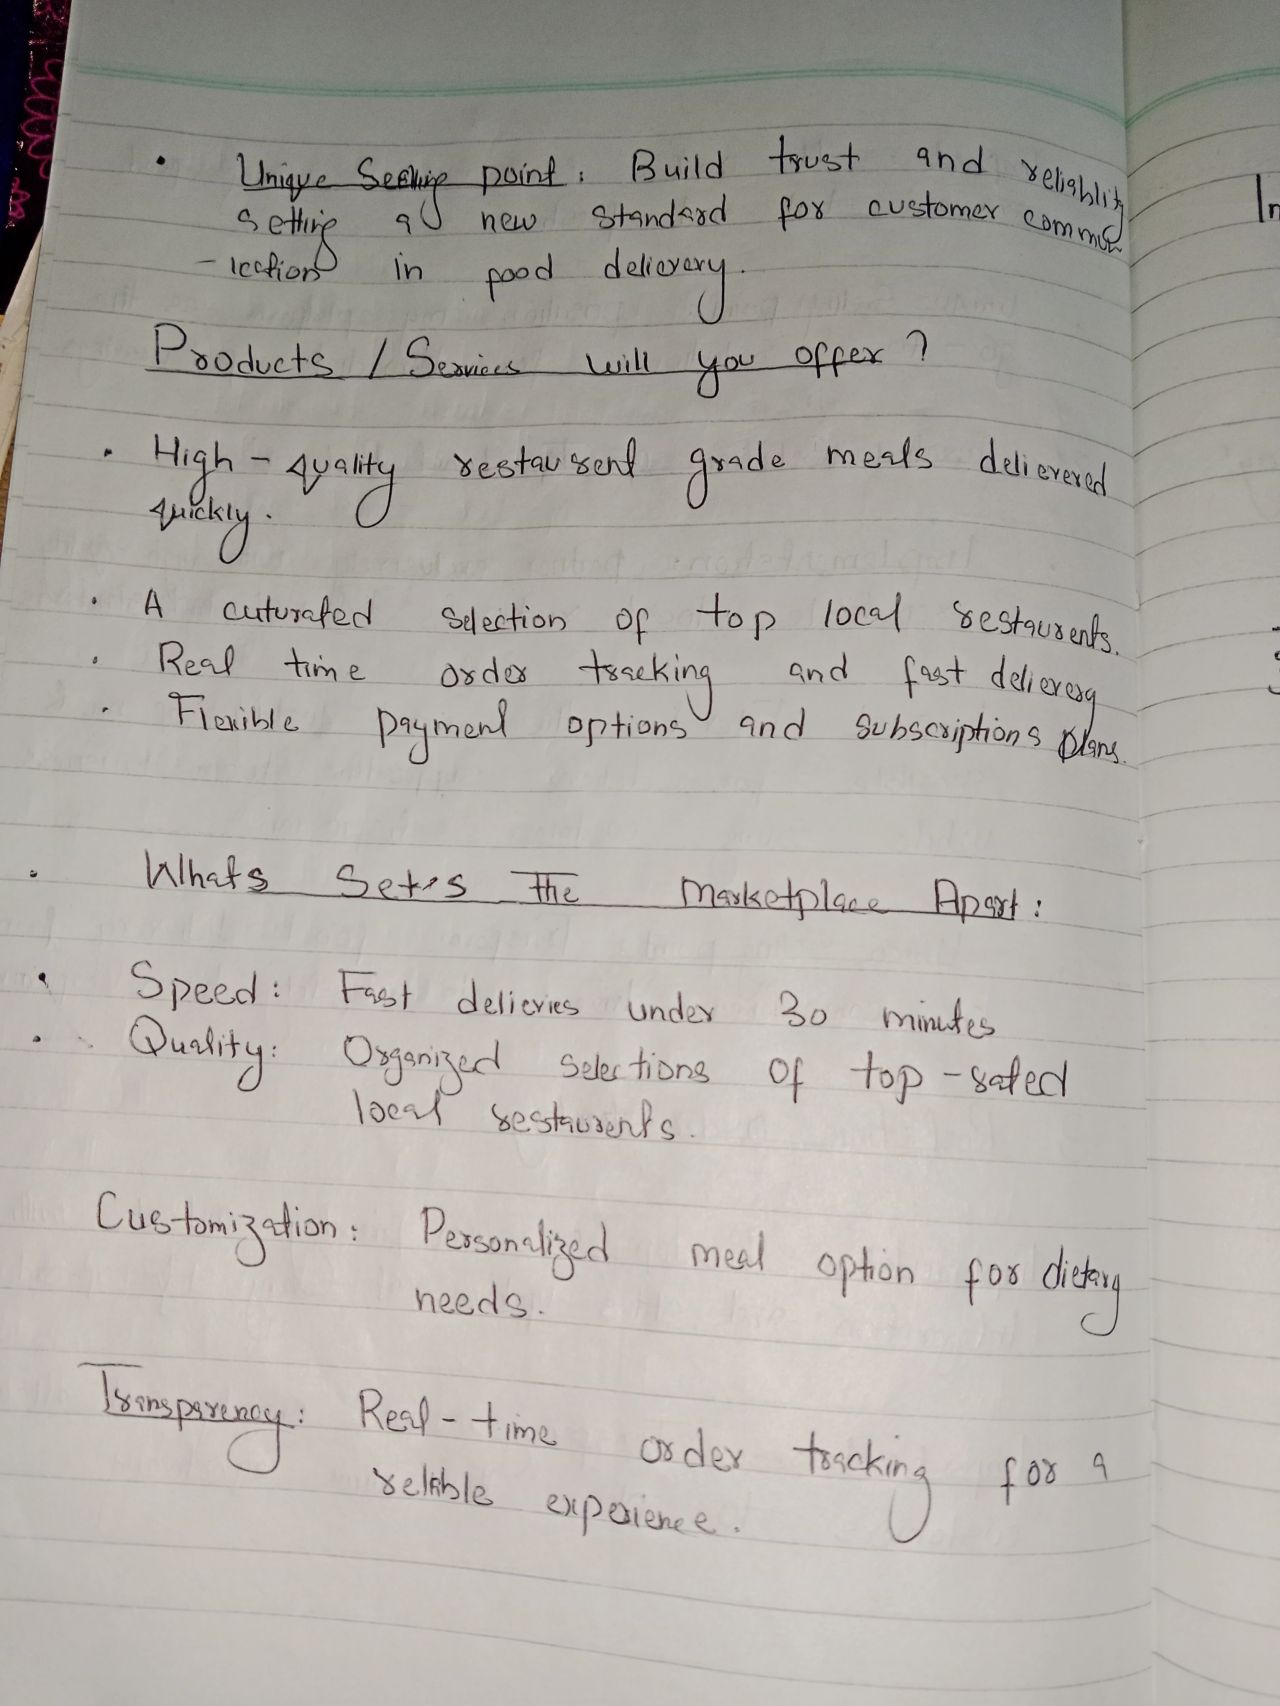 • Unique Selling point: Build trust and reliablity
setting a new standard for customer commun
-ication in food delievery.
Products / Services will you offer?
• High-quality restaurent grade meals delievered
quickly.
• A cuturated selection of top local restaurents.
• Real time order tracking and fast delievery
• Flexible payment options and subscriptions plans.
• Whats Sets The Marketplace Apart:
• Speed: Fast delieries under 30 minutes
• Quality: Organized selections of top-rated
local restaurents.
Customization: Personalized meal option for dietary
needs.
Transparency: Real-time order tracking for a
relible experience.